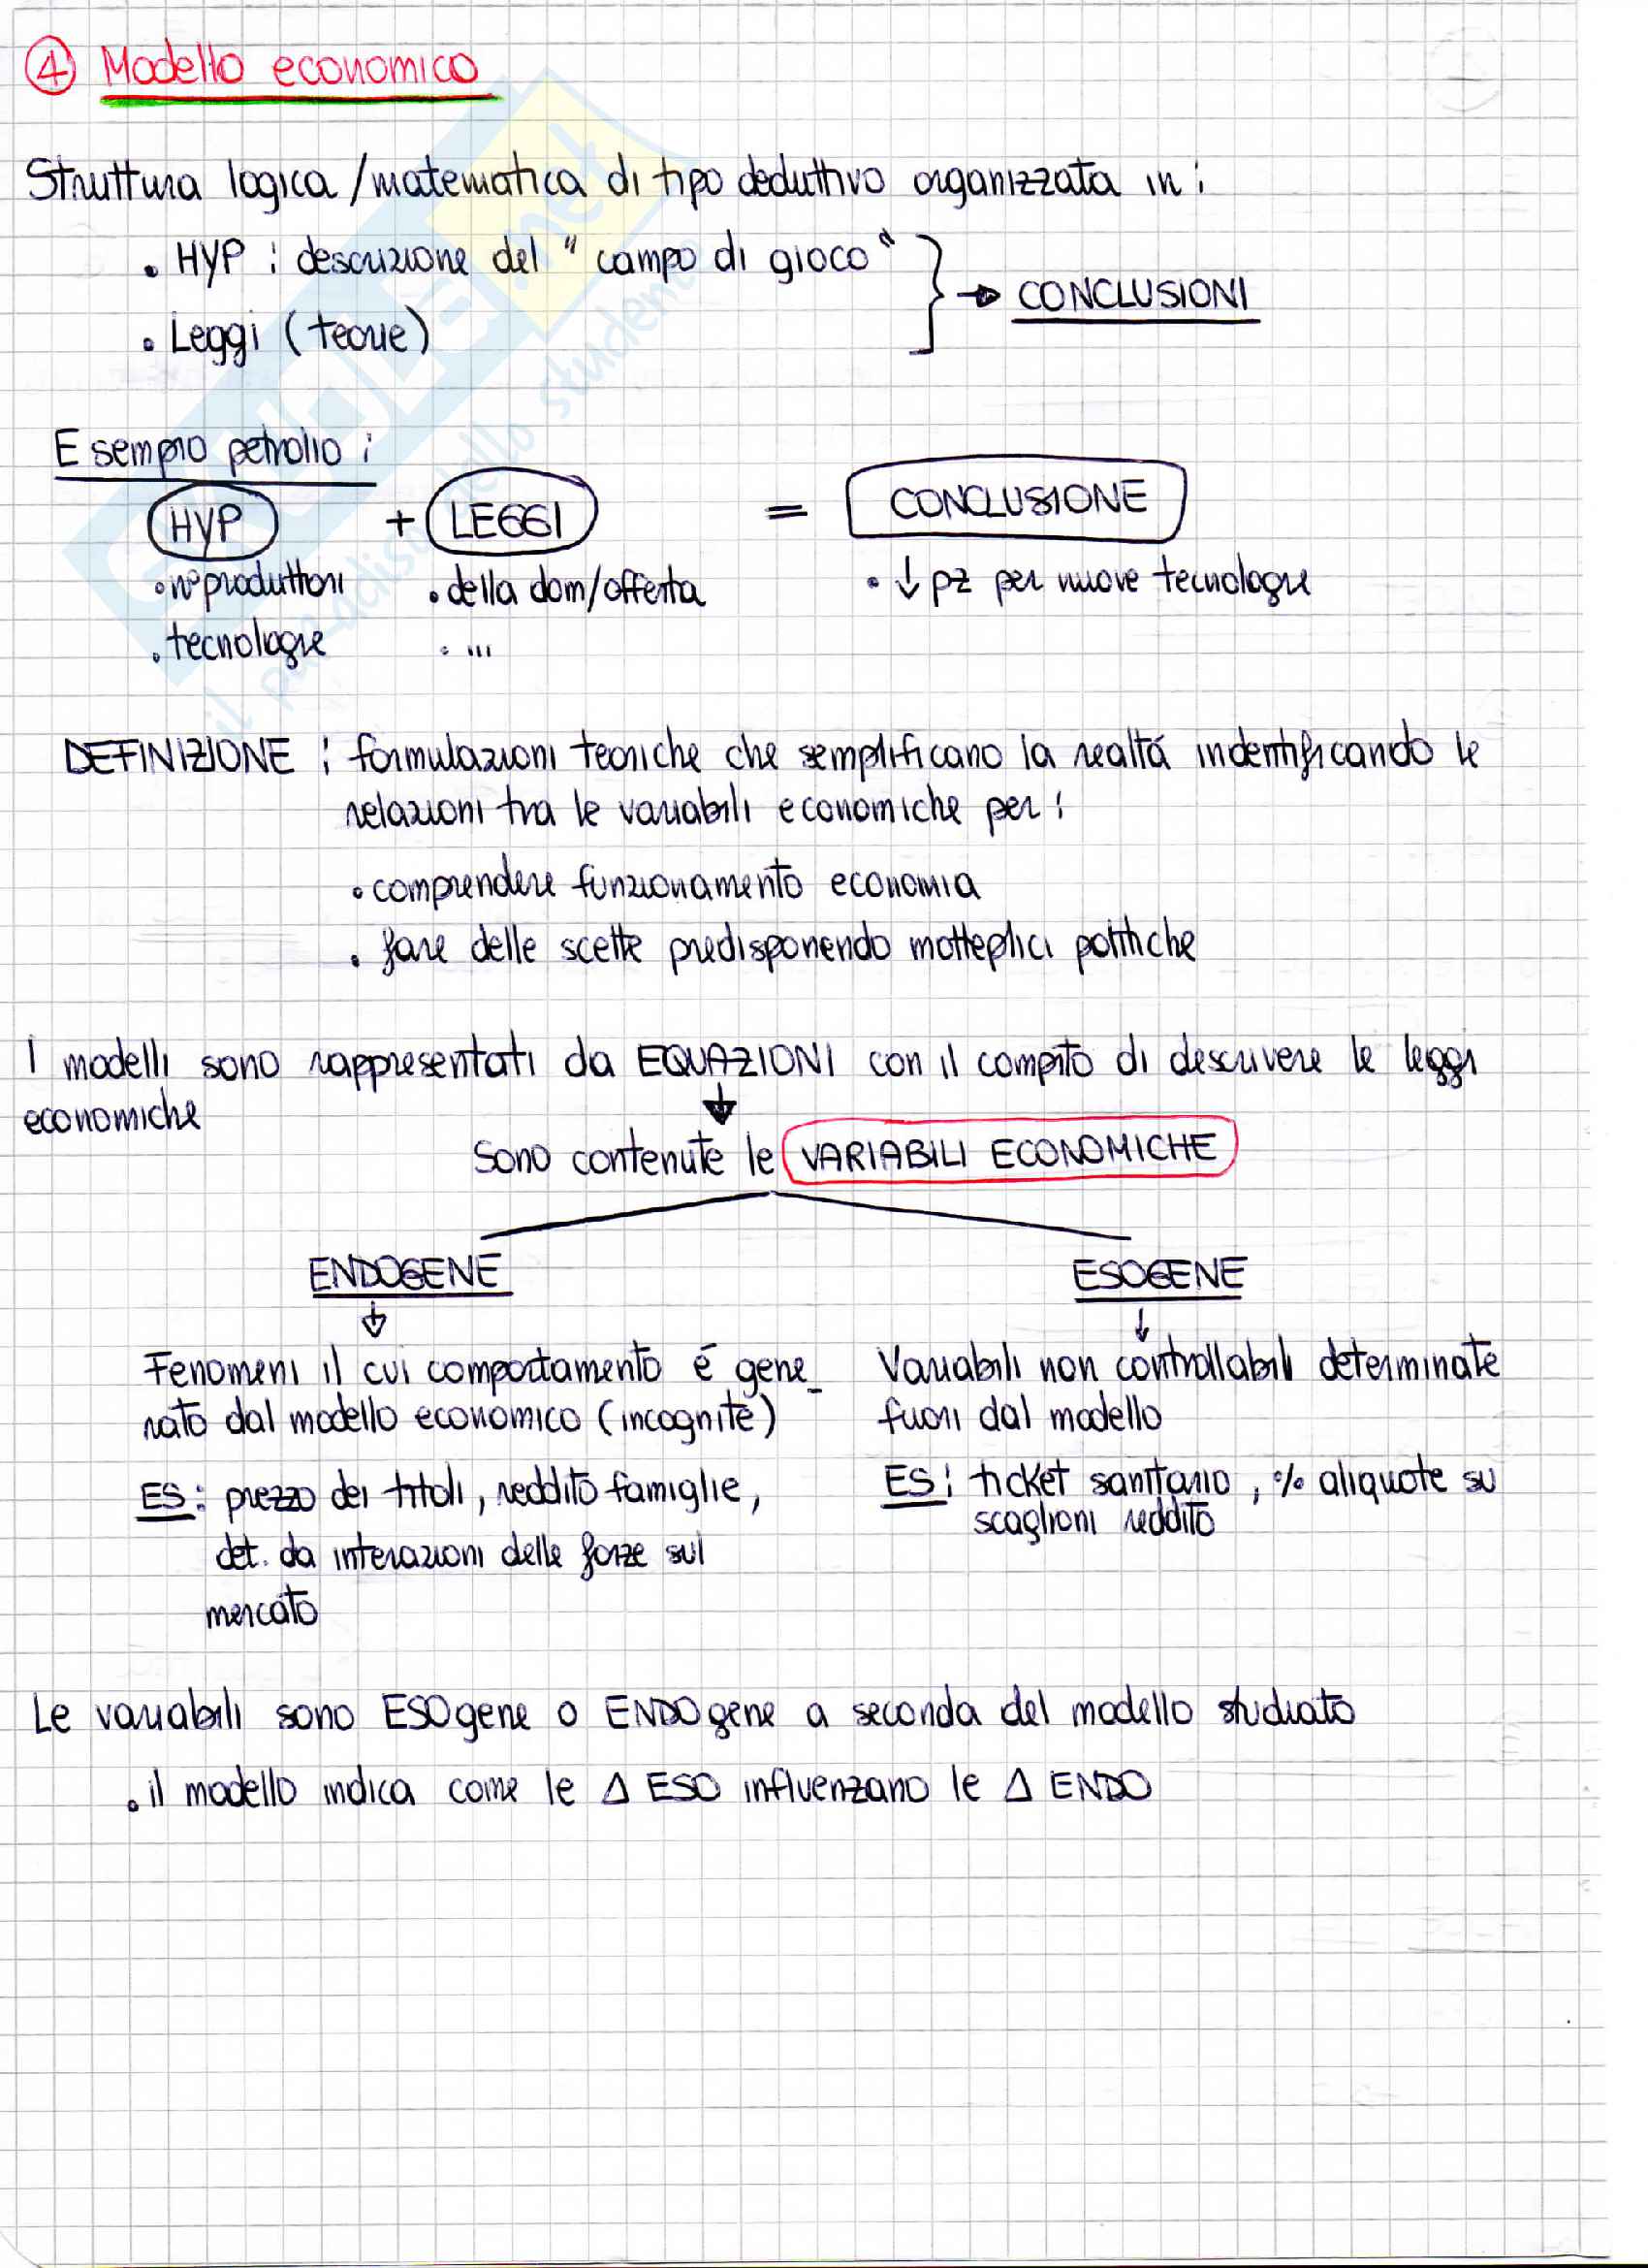 ④ Modello economico
Struttura logica/matematica di tipo deduttivo organizzata in:
• HYP: descrizione del "campo di gioco"
• Leggi (teorie)
→ CONCLUSIONI
Esempio petrolio:
HYP + LEGGI = CONCLUSIONE
• n° produttori • della dom/offerta • ↓ pz per nuove tecnologie
• tecnologie • ...
DEFINIZIONE: formulazioni teoriche che semplificano la realtá indentificando le
relazioni tra le variabili economiche per:
• comprendere funzionamento economia
• fare delle scelte predisponendo molteplici politiche
I modelli sono rappresentati da EQUAZIONI con il compito di descrivere le leggi
economiche
Sono contenute le VARIABILI ECONOMICHE
ENDOGENE ESOGENE
Fenomeni il cui comportamento é gene_ Variabili non controllabili determinate
rato dal modello economico (incognite) fuori dal modello
ES: prezzo dei titoli, reddito famiglie, ES: ticket sanitario, % aliquote su
scaglioni reddito
det. da interazioni delle forze sul
mercato
Le variabili sono ESOgene o ENDOgene a seconda del modello studiato
• il modello indica come le Δ ESO influenzano le Δ ENDO
.net
il paradiso dello studente